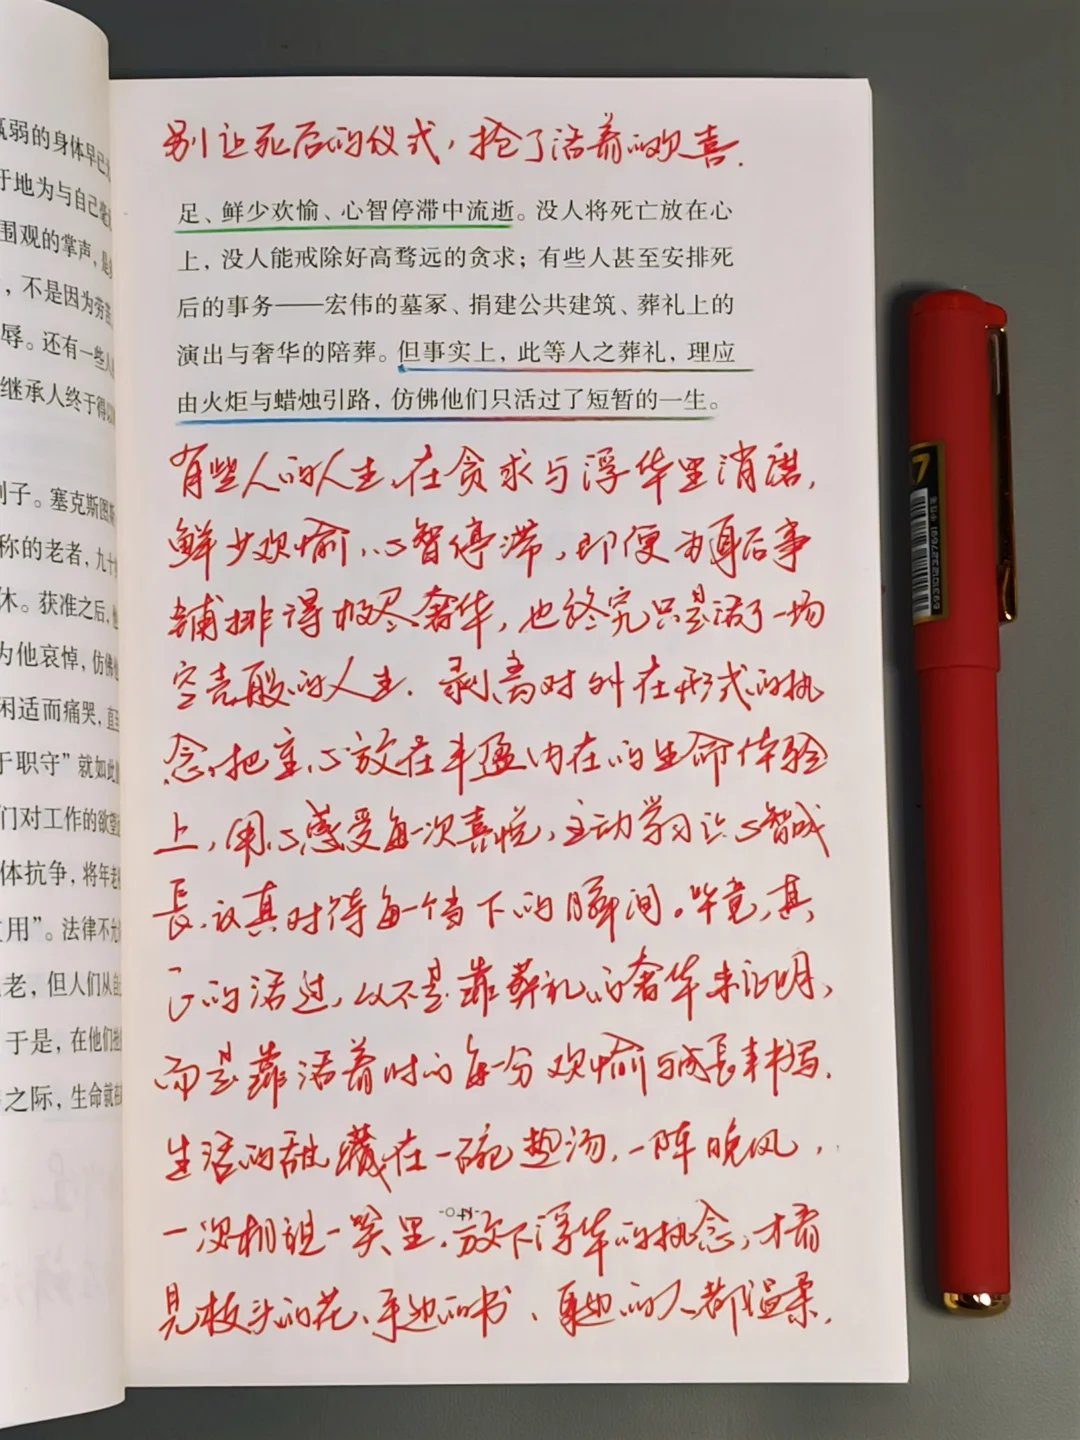 羸弱的身体早已
于地为与自己毫
围观的掌声，是
，不是因为劳
辱。还有一些人
继承人终于得以
列子。塞克斯图斯
称的老者，九十
休。获准之后，他
为他哀悼，仿佛他
闲适而痛哭，直至
于职守”就如此
们对工作的欲望
体抗争，将年老
用”。法律不允
老，但人们从自
于是，在他们
之际，生命就
别让死后的仪式，抢了活着的欢喜.
足、鲜少欢愉、心智停滞中流逝。没人将死亡放在心
上，没人能戒除好高骛远的贪求；有些人甚至安排死
后的事务——宏伟的墓冢、捐建公共建筑、葬礼上的
演出与奢华的陪葬。但事实上，此等人之葬礼，理应
由火炬与蜡烛引路，仿佛他们只活过了短暂的一生。
有些人的人生，在贪求与浮华里消磨，
鲜少欢愉，心智停滞，即便为身后事
铺排得极尽奢华，也终究只是活了一场
空壳般的人生.剥离对外在形式的执
念，把重心放在丰盈内在的生命体验
上，用心感受每一次喜悦，主动学习让心智成
長，认真对待每一个当下的瞬间。毕竟，真
正的活过，从不是靠葬礼的奢华来证明，
而是靠活着时的每一分欢愉与成長来书写.
生活的甜藏在一碗热汤，一阵晚风，
一次相视一笑里，放下浮华的执念，才看
見枝头的花、手边的书、身边的人都温柔.